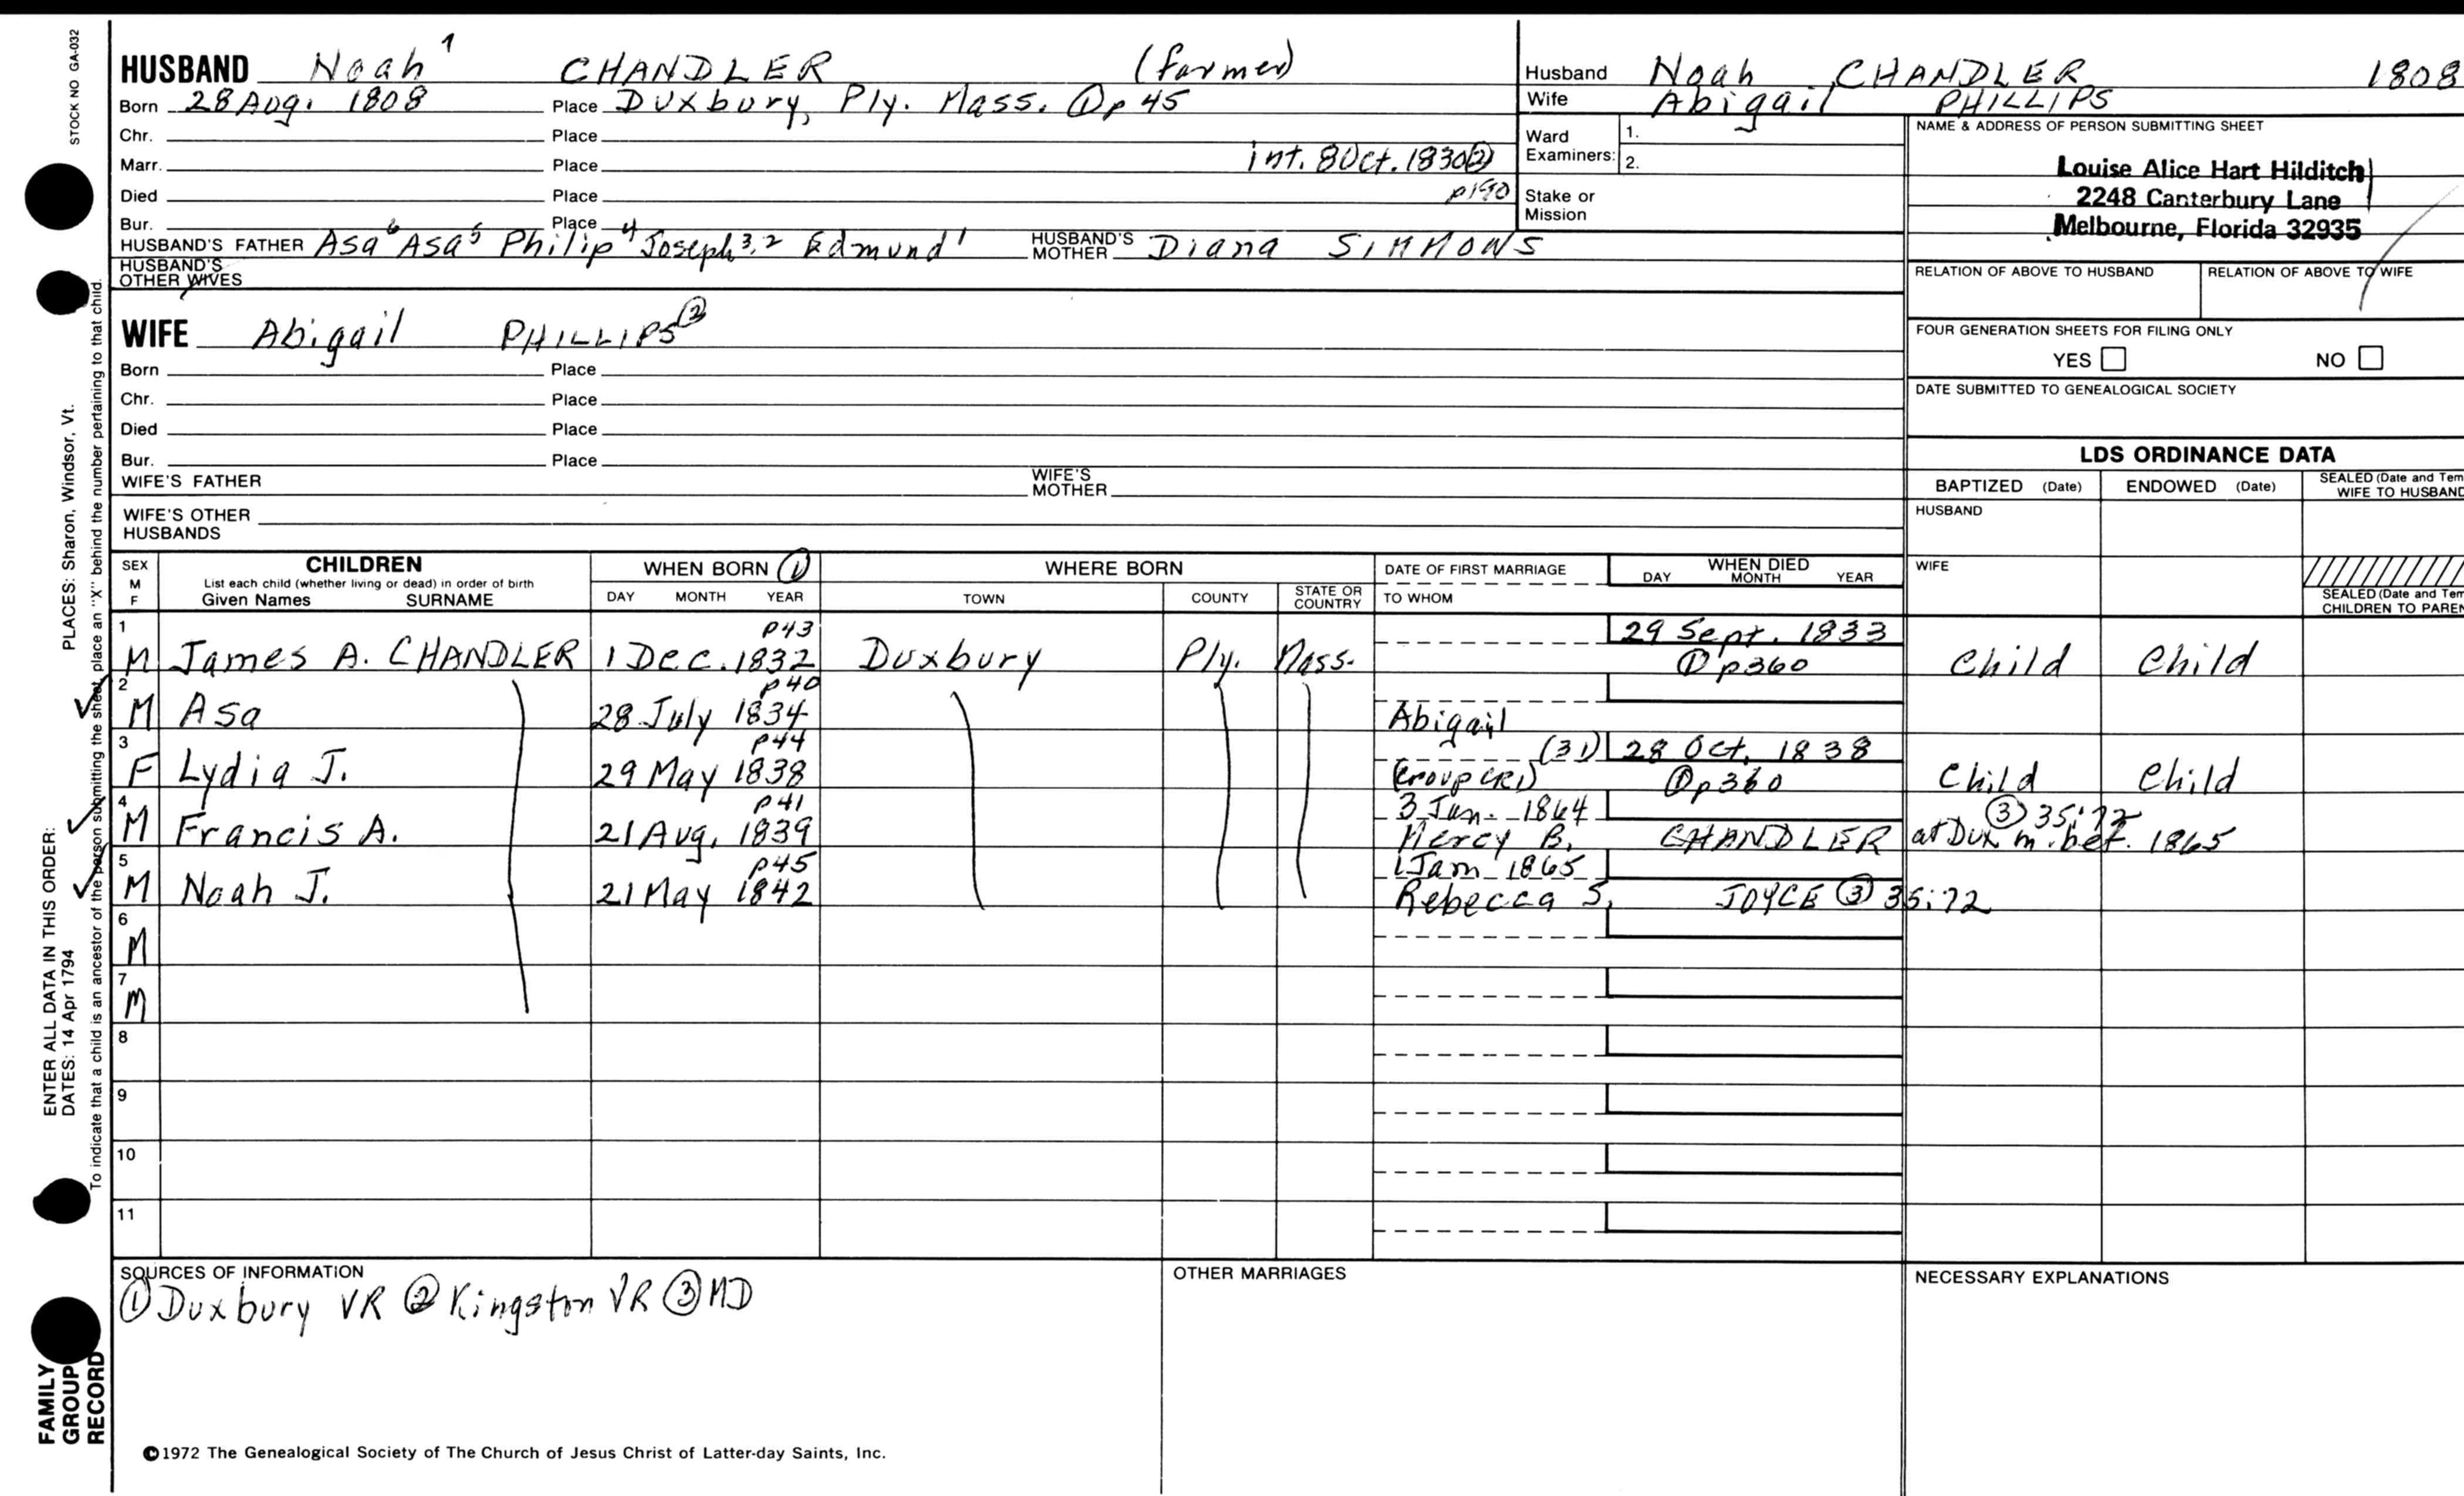 STOCK NO GA-032
HUSBAND Noah CHANDLER (farmer)
Born 28 Aug. 1808 Place Duxbury, Ply. Mass. ① p 45
Chr. Place
Marr. Place int. 8 Oct. 1830 ②
Died Place p190
Bur. Place
HUSBAND'S FATHER Asa⁶ Asa⁵ Philip⁴ Joseph³,² Edmund¹ HUSBAND'S MOTHER Diana SIMMONS
HUSBAND'S OTHER WIVES
WIFE Abigail PHILLIPS ②
Born Place
Chr. Place
Died Place
Bur. Place
WIFE'S FATHER WIFE'S MOTHER
WIFE'S OTHER HUSBANDS
Husband Noah CHANDLER 1808
Wife Abigail PHILLIPS
Ward Examiners: 1.
2.
Stake or Mission
NAME & ADDRESS OF PERSON SUBMITTING SHEET
Louise Alice Hart Hilditch
2248 Canterbury Lane
Melbourne, Florida 32935
RELATION OF ABOVE TO HUSBAND RELATION OF ABOVE TO WIFE
FOUR GENERATION SHEETS FOR FILING ONLY
YES NO
DATE SUBMITTED TO GENEALOGICAL SOCIETY
LDS ORDINANCE DATA
BAPTIZED (Date) ENDOWED (Date) SEALED (Date and Tem
WIFE TO HUSBAND
HUSBAND
WIFE
SEALED (Date and Tem
CHILDREN TO PAREN
SEX M F CHILDREN WHEN BORN ① WHERE BORN DATE OF FIRST MARRIAGE WHEN DIED
List each child (whether living or dead) in order of birth
Given Names SURNAME DAY MONTH YEAR TOWN COUNTY STATE OR COUNTRY TO WHOM DAY MONTH YEAR
1 p43 29 Sept. 1833
M James A. CHANDLER 1 Dec. 1832 Duxbury Ply. Mass. ① p360 Child Child
2 p40
M Asa 28 July 1834 Abigail
3 p44 (31) 28 Oct. 1838
F Lydia J. 29 May 1838 (croup CR1) ① p360 Child Child
4 p41 3 Jan. 1864 ③ 35:72
M Francis A. 21 Aug. 1839 Mercy B. CHANDLER at Dux m. bef. 1865
5 p45 1 Jan 1865
M Noah J. 21 May 1842 Rebecca S. JOYCE ③ 35:72
6
M
7
M
8
9
10
11
SOURCES OF INFORMATION
① Duxbury VR ② Kingston VR ③ MD
OTHER MARRIAGES
NECESSARY EXPLANATIONS
©1972 The Genealogical Society of The Church of Jesus Christ of Latter-day Saints, Inc.
FAMILY
GROUP
RECORD
ENTER ALL DATA IN THIS ORDER:
DATES: 14 Apr 1794 PLACES: Sharon, Windsor, Vt.
To indicate that a child is an ancestor of the person submitting the sheet, place an "X" behind the number pertaining to that child.